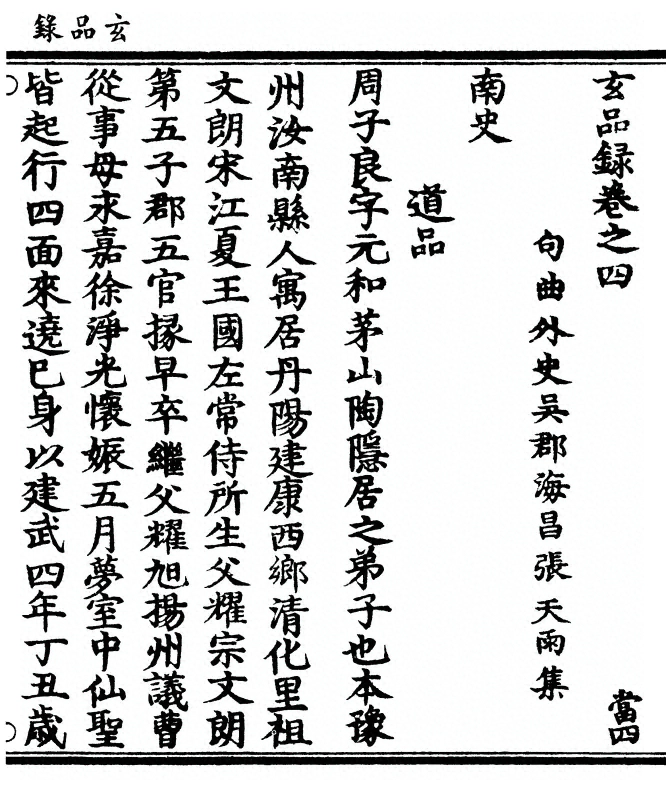 玄品錄
玄品録巻之四
當四
句曲外史吳郡海昌張天雨集
南史
道品
周子良字元和茅山陶隱居之弟子也本豫
州汝南縣人寓居丹陽建康西鄉清化里祖
文朗宋江夏王國左常侍所生父耀宗文朗
第五子郡五官掾早卒繼父耀旭揚州議曹
從事母永嘉徐淨光懷娠五月夢室中仙聖
皆起行四面來遶巳身以建武四年丁丑歲